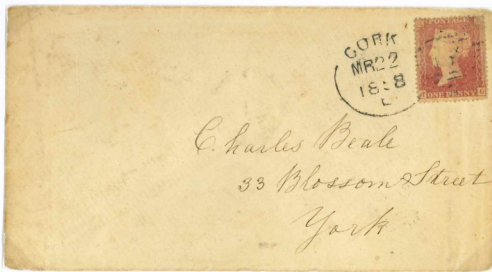 CORK
MR22
1858
L
ONE PENNY
C. harles Beale
33 Blossom Street
York